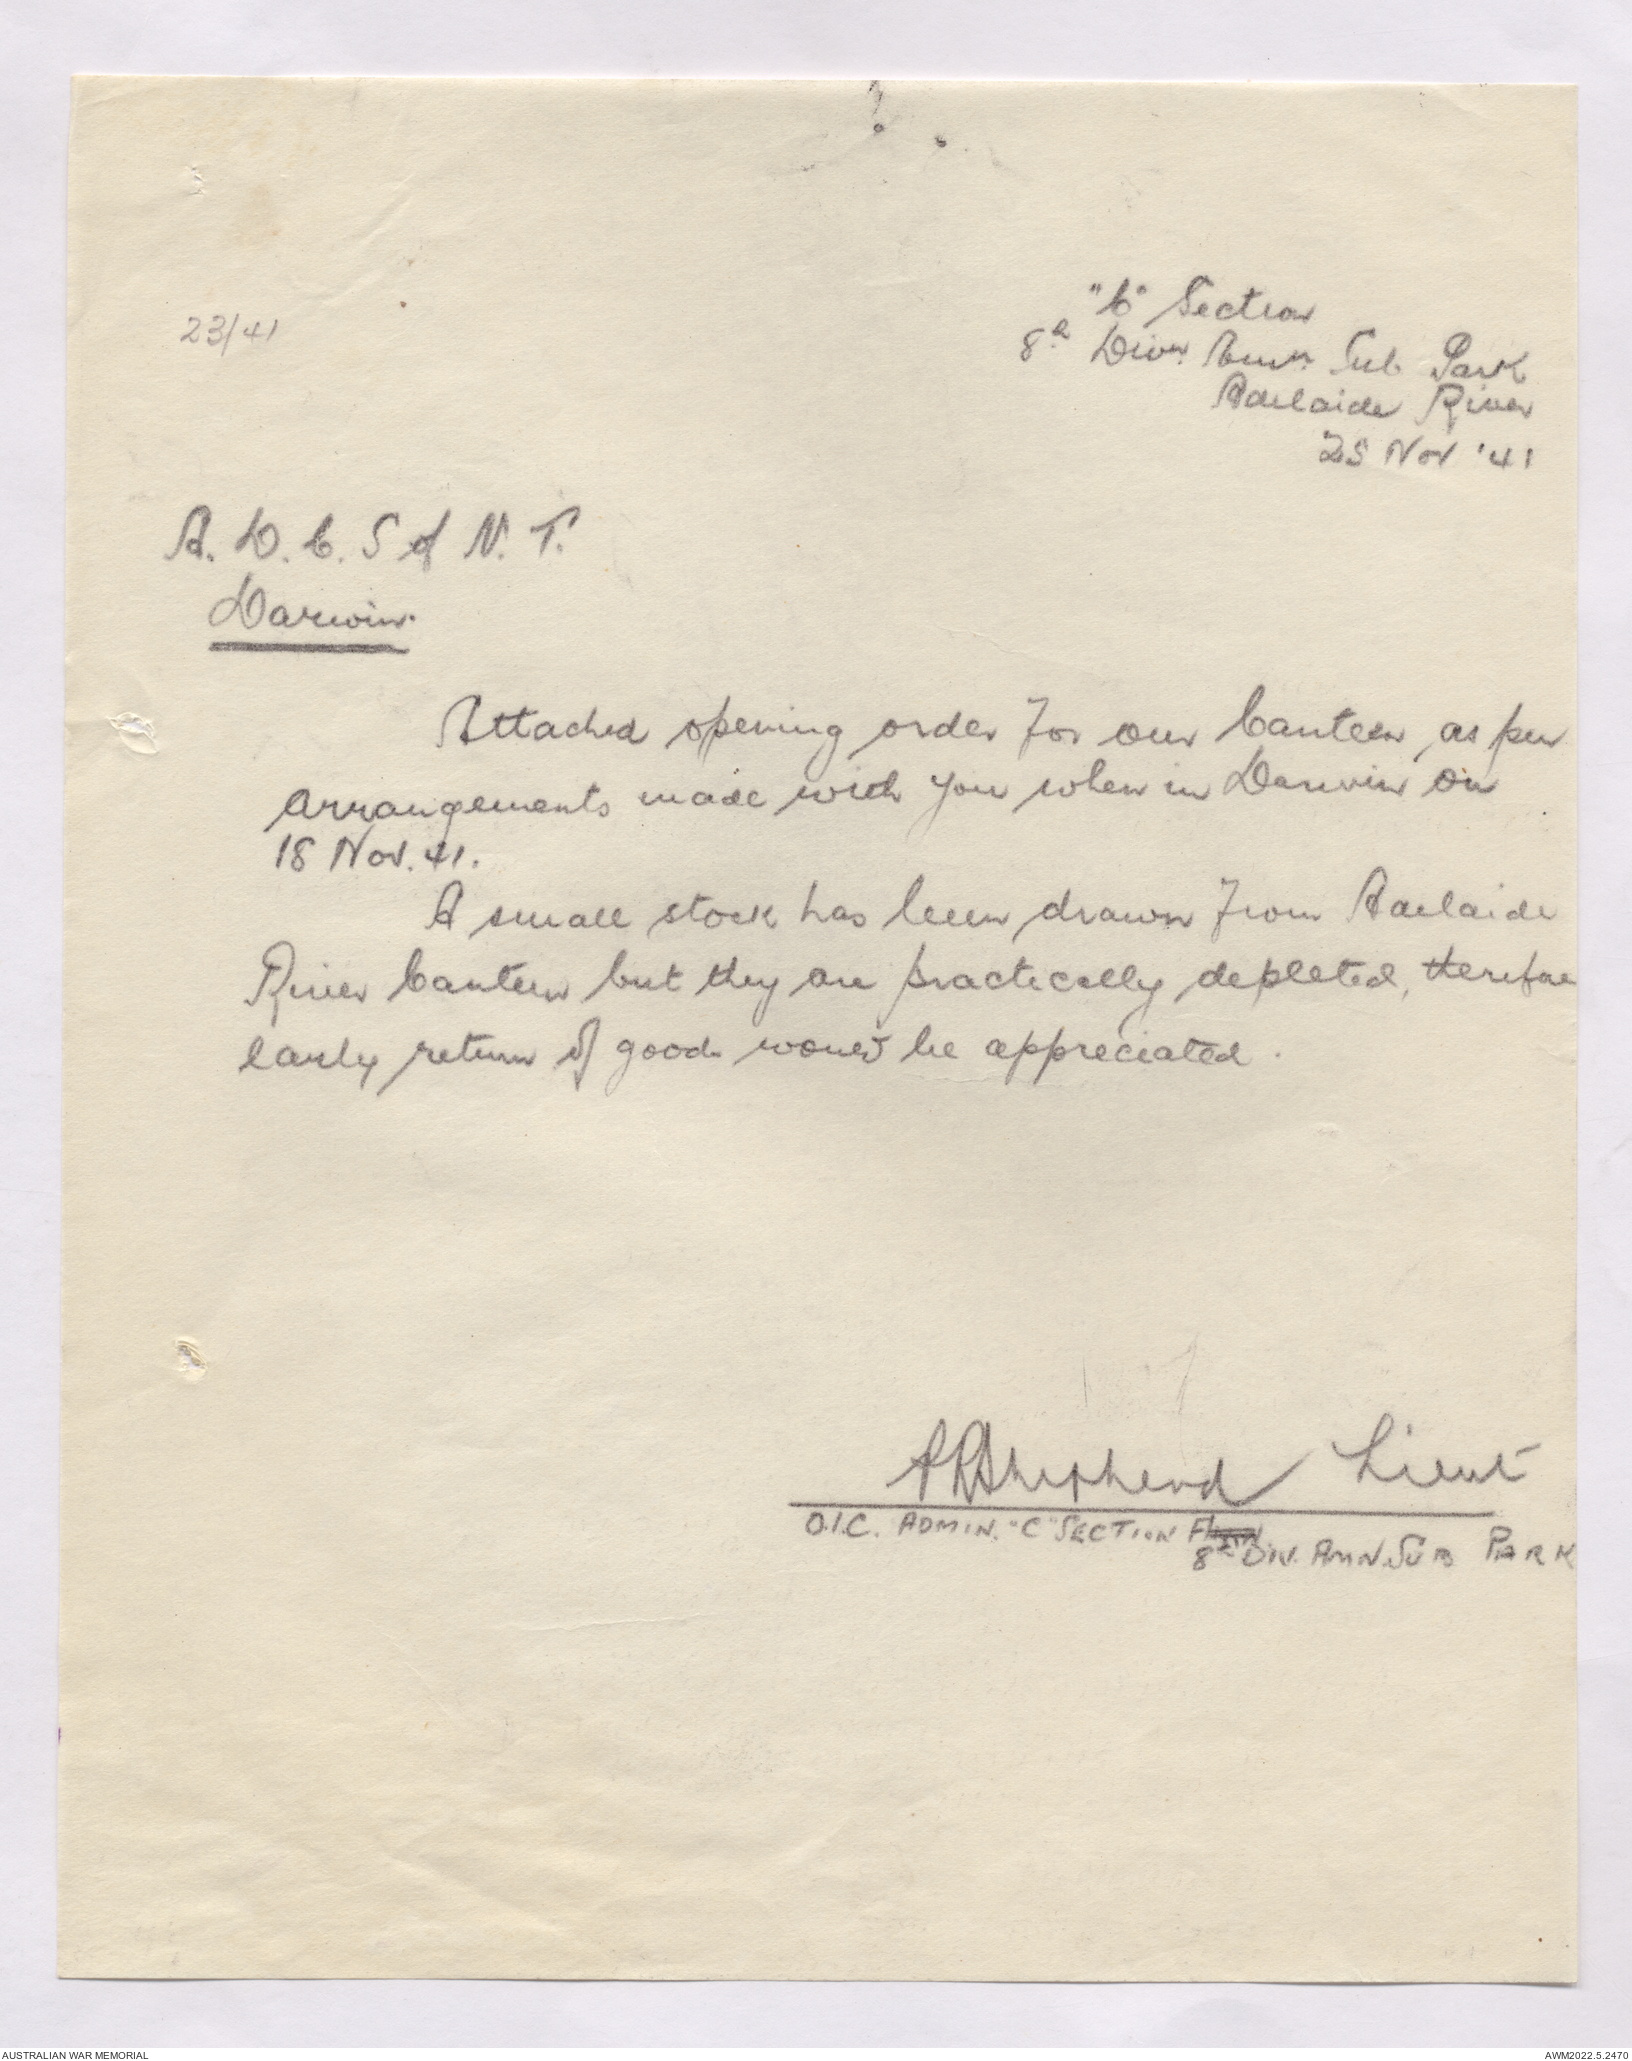 23/41
"C" Section
8th Divn Amn. Sub Park
Adelaide River
25 Nov '41
A. D. C. S of N. T.
Darwin.
Attached opening order for our Canteen, as per
arrangements made with you when in Darwin on
18 Nov. 41.
A small stock has been drawn from Adelaide
River Canteen but they are practically depleted, therefore
early return of goods would be appreciated.
Shepherd Lieut
O.I.C. ADMIN. "C" SECTION
8th DIV. AMN. SUB PARK
AUSTRALIAN WAR MEMORIAL
AWM2022.5.2470